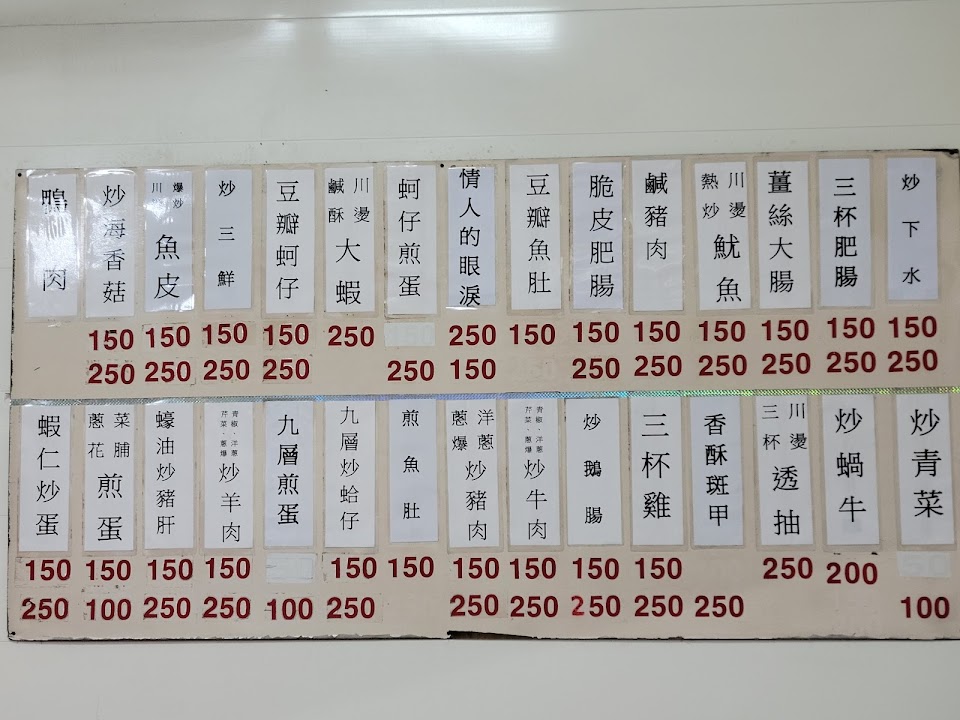 炒下水
150
250
三杯肥腸
150
250
薑絲大腸
150
250
川燙
熱炒
魷魚
150
250
鹹豬肉
150
250
脆皮肥腸
150
250
豆瓣魚肚
150
情人的眼淚
250
150
蚵仔煎蛋
250
川燙
鹹酥
大蝦
250
豆瓣蚵仔
150
250
炒三鮮
150
250
爆炒
川燙
魚皮
150
250
炒海香菇
150
250
鴨肉
炒青菜
100
炒蝸牛
200
川燙
三杯
透抽
250
香酥斑甲
250
三杯雞
150
250
炒鵝腸
150
250
青椒、洋蔥
芹菜、蔥爆
炒牛肉
150
250
洋蔥
蔥爆
炒豬肉
150
250
煎魚肚
150
九層炒蛤仔
150
250
九層煎蛋
100
青椒、洋蔥
芹菜、蔥爆
炒羊肉
150
250
蠔油炒豬肝
150
250
菜脯
蔥花
煎蛋
150
100
蝦仁炒蛋
150
250